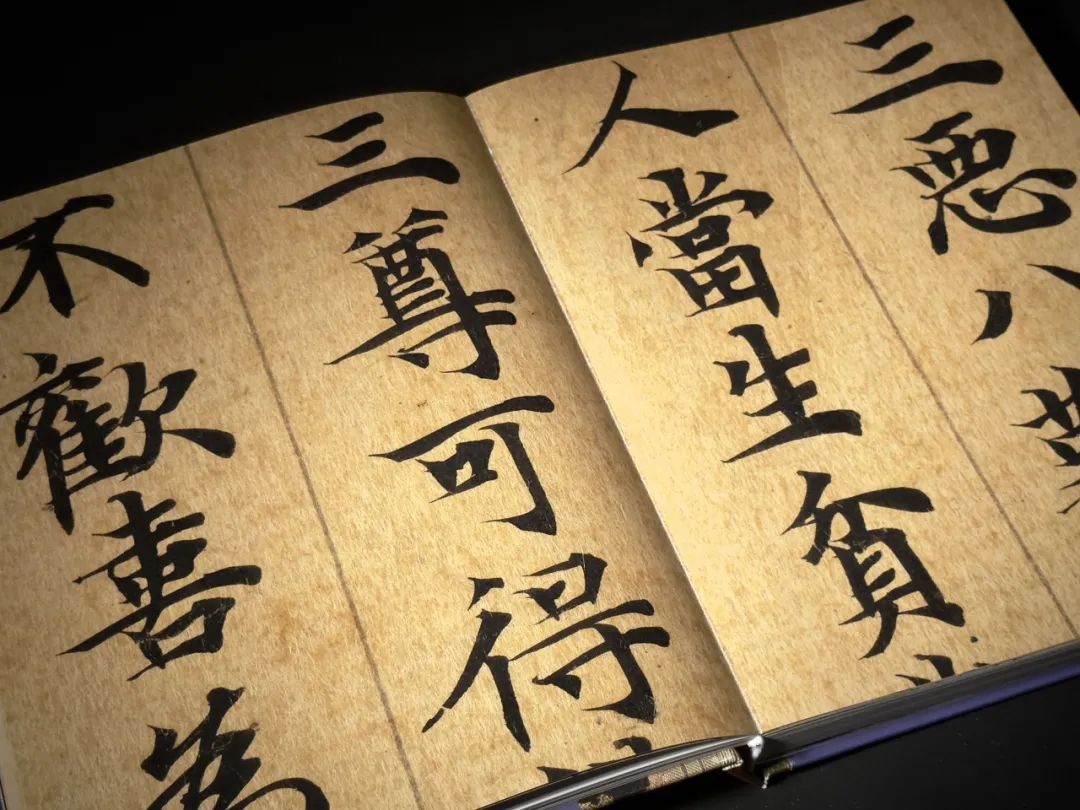 三惡八
人當生貧
三尊可得
不歡喜為